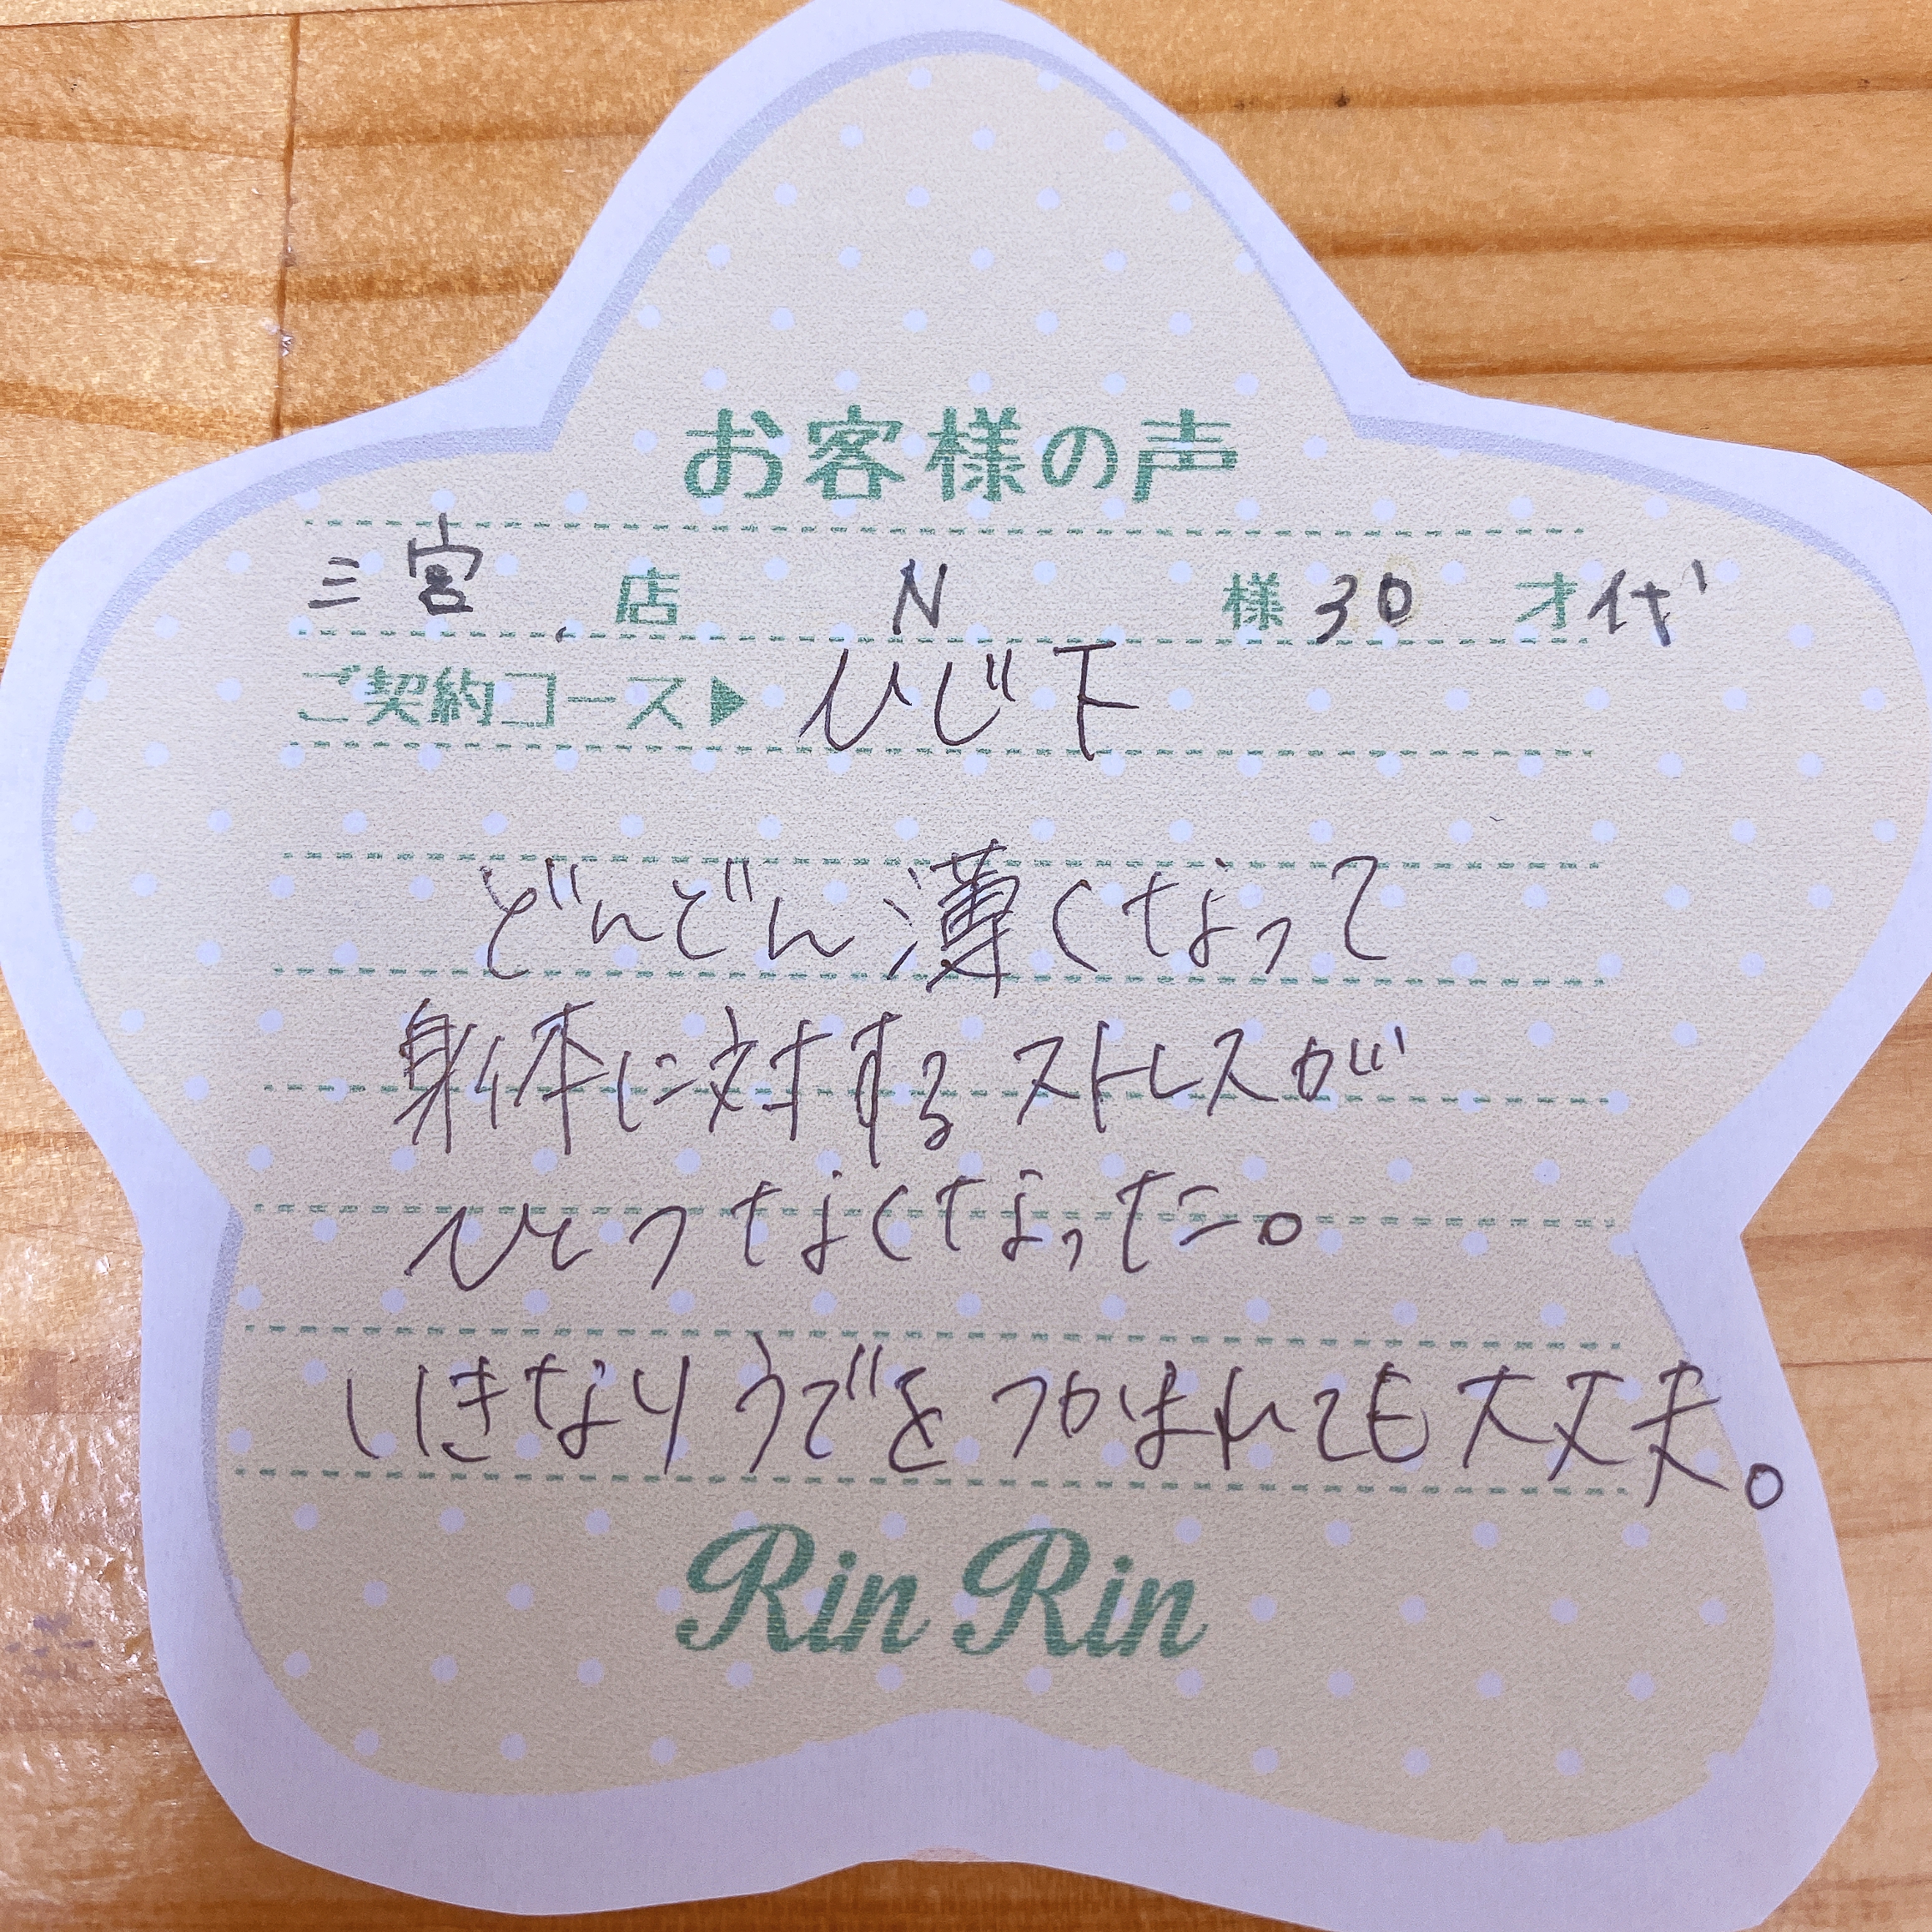 お客様の声
三宮 店 N 様 30 才代
ご契約コース▶ ひじ下
どんどん薄くなって
身体に対するストレスが
ひとつなくなった。
いきなりうでをつかまれても大丈夫。
Rin Rin